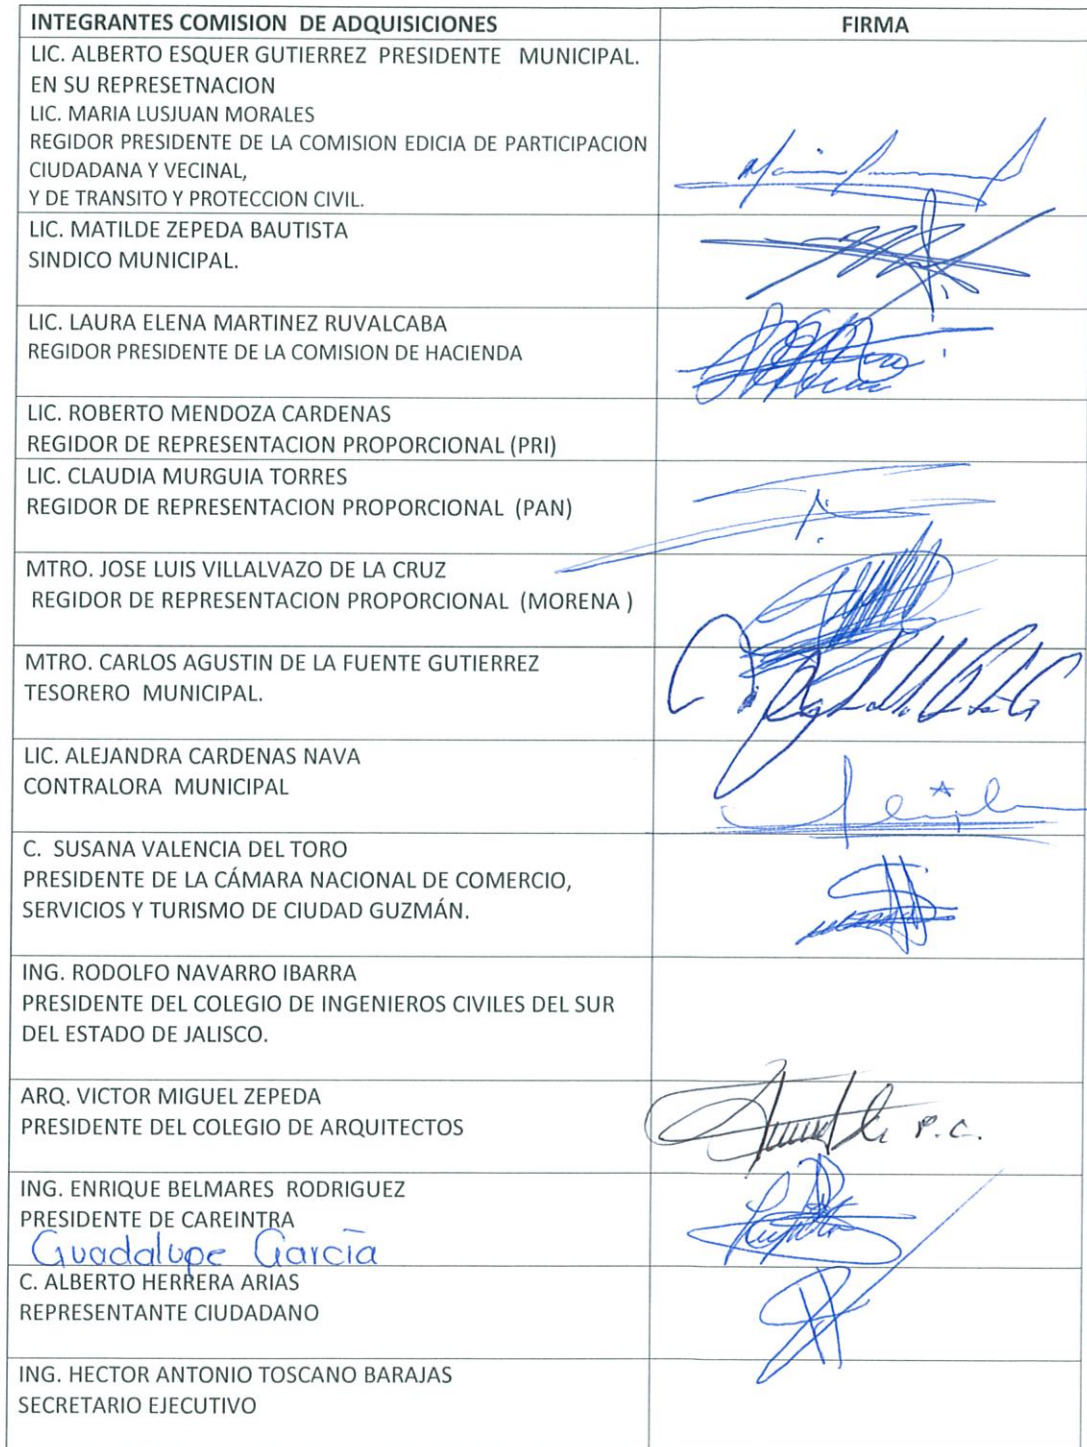 INTEGRANTES COMISION DE ADQUISICIONES FIRMA
LIC. ALBERTO ESQUER GUTIERREZ PRESIDENTE MUNICIPAL.
EN SU REPRESETNACION
LIC. MARIA LUSJUAN MORALES
REGIDOR PRESIDENTE DE LA COMISION EDICIA DE PARTICIPACION
CIUDADANA Y VECINAL,
Y DE TRANSITO Y PROTECCION CIVIL.
LIC. MATILDE ZEPEDA BAUTISTA
SINDICO MUNICIPAL.
LIC. LAURA ELENA MARTINEZ RUVALCABA
REGIDOR PRESIDENTE DE LA COMISION DE HACIENDA
LIC. ROBERTO MENDOZA CARDENAS
REGIDOR DE REPRESENTACION PROPORCIONAL (PRI)
LIC. CLAUDIA MURGUIA TORRES
REGIDOR DE REPRESENTACION PROPORCIONAL (PAN)
MTRO. JOSE LUIS VILLALVAZO DE LA CRUZ
REGIDOR DE REPRESENTACION PROPORCIONAL (MORENA )
MTRO. CARLOS AGUSTIN DE LA FUENTE GUTIERREZ
TESORERO MUNICIPAL.
LIC. ALEJANDRA CARDENAS NAVA
CONTRALORA MUNICIPAL
C. SUSANA VALENCIA DEL TORO
PRESIDENTE DE LA CÁMARA NACIONAL DE COMERCIO,
SERVICIOS Y TURISMO DE CIUDAD GUZMÁN.
ING. RODOLFO NAVARRO IBARRA
PRESIDENTE DEL COLEGIO DE INGENIEROS CIVILES DEL SUR
DEL ESTADO DE JALISCO.
ARQ. VICTOR MIGUEL ZEPEDA
PRESIDENTE DEL COLEGIO DE ARQUITECTOS
P.C.
ING. ENRIQUE BELMARES RODRIGUEZ
PRESIDENTE DE CAREINTRA
Guadalupe García
C. ALBERTO HERRERA ARIAS
REPRESENTANTE CIUDADANO
ING. HECTOR ANTONIO TOSCANO BARAJAS
SECRETARIO EJECUTIVO